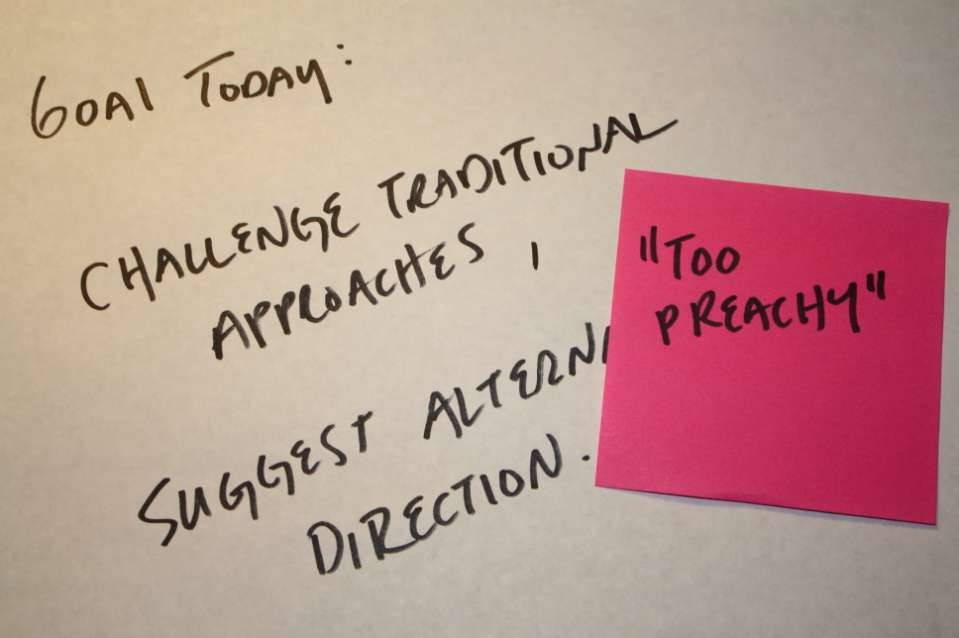 GOAL TODAY:
CHALLENGE TRADITIONAL
APPROACHES,
SUGGEST
DIRECTION.
"TOO
PREACHY"